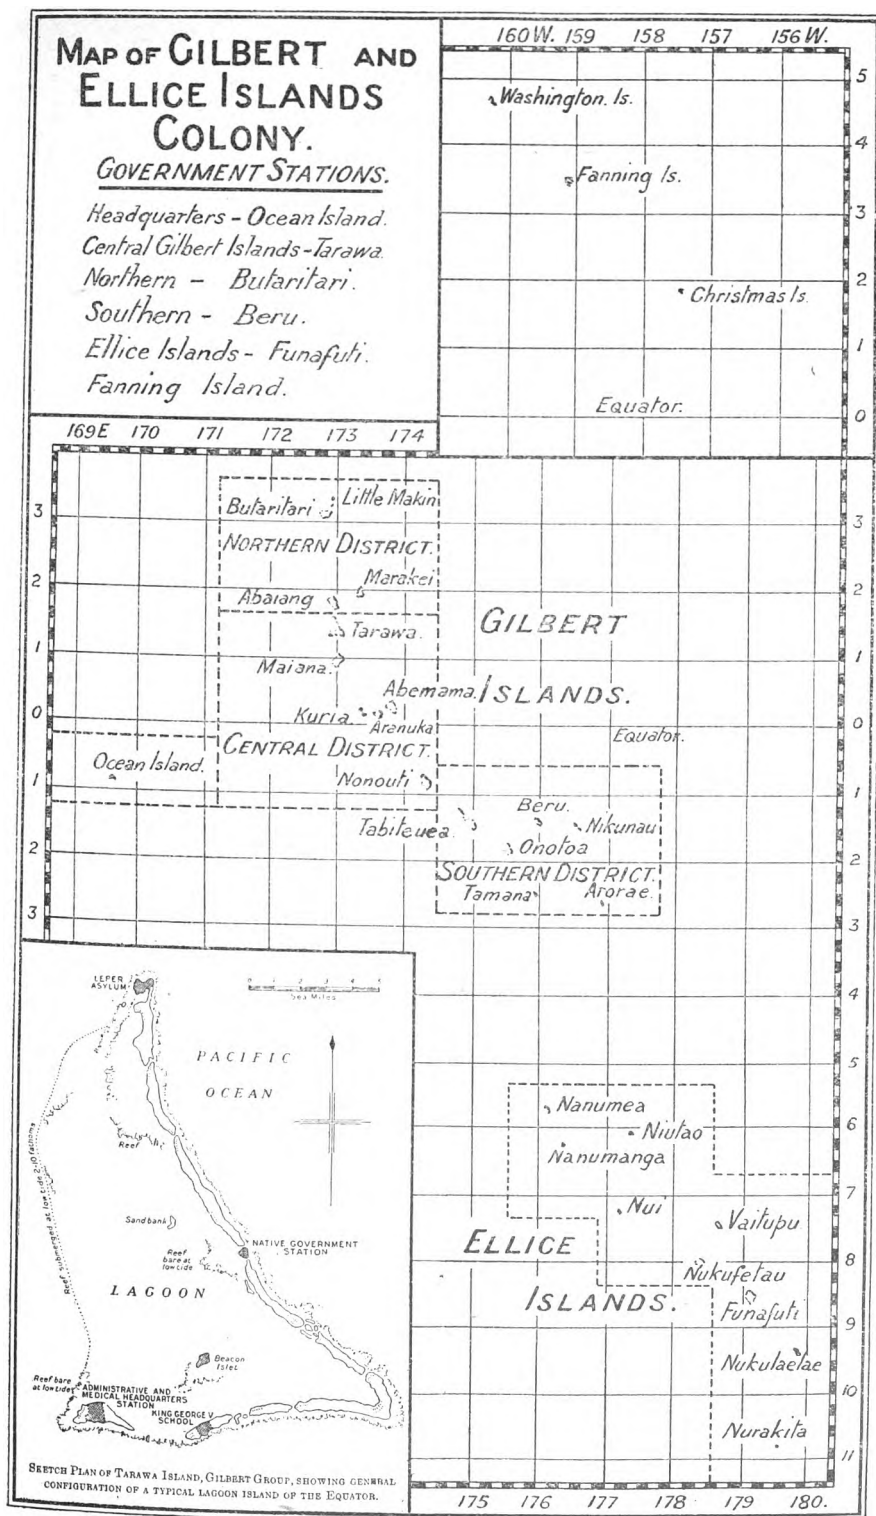 MAP OF GILBERT AND
ELLICE ISLANDS
COLONY.
GOVERNMENT STATIONS.
Headquarters - Ocean Island.
Central Gilbert Islands - Tarawa.
Northern - Butaritari.
Southern - Beru.
Ellice Islands - Funafuti.
Fanning Island.
160 W. 159 158 157 156 W.
5
Washington. Is.
4
Fanning Is.
3
2
Christmas Is.
1
Equator.
0
169 E 170 171 172 173 174
Butaritari
Little Makin
3
3
NORTHERN DISTRICT.
Marakei
2
2
Abaiang
Tarawa.
GILBERT
1
1
Maiana.
Abemama.
ISLANDS.
Kuria
Aranuka
0
0
Equator.
CENTRAL DISTRICT.
Ocean Island.
Nonouti
1
1
Beru.
Tabiteuea.
Nikunau
Onotoa
2
2
SOUTHERN DISTRICT.
Tamana
Arorae.
3
3
4
5
Nanumea
6
Niutao
Nanumanga
7
Nui
Vaitupu
ELLICE
8
Nukufetau
ISLANDS.
Funafuti
9
Nukulaelae
10
Nurakita
11
175 176 177 178 179 180.
LEPER
ASYLUM
0 1 2 3 4 5
Sea Miles
PACIFIC
OCEAN
Reef
Reef submerged at low tide 2-10 fathoms
Sandbank
NATIVE GOVERNMENT
STATION
Reef
bare at
low tide
LAGOON
Beacon
Islet
Reef bare
at low tides
ADMINISTRATIVE AND
MEDICAL HEADQUARTERS
STATION
KING GEORGE V
SCHOOL
SKETCH PLAN OF TARAWA ISLAND, GILBERT GROUP, SHOWING GENERAL
CONFIGURATION OF A TYPICAL LAGOON ISLAND OF THE EQUATOR.